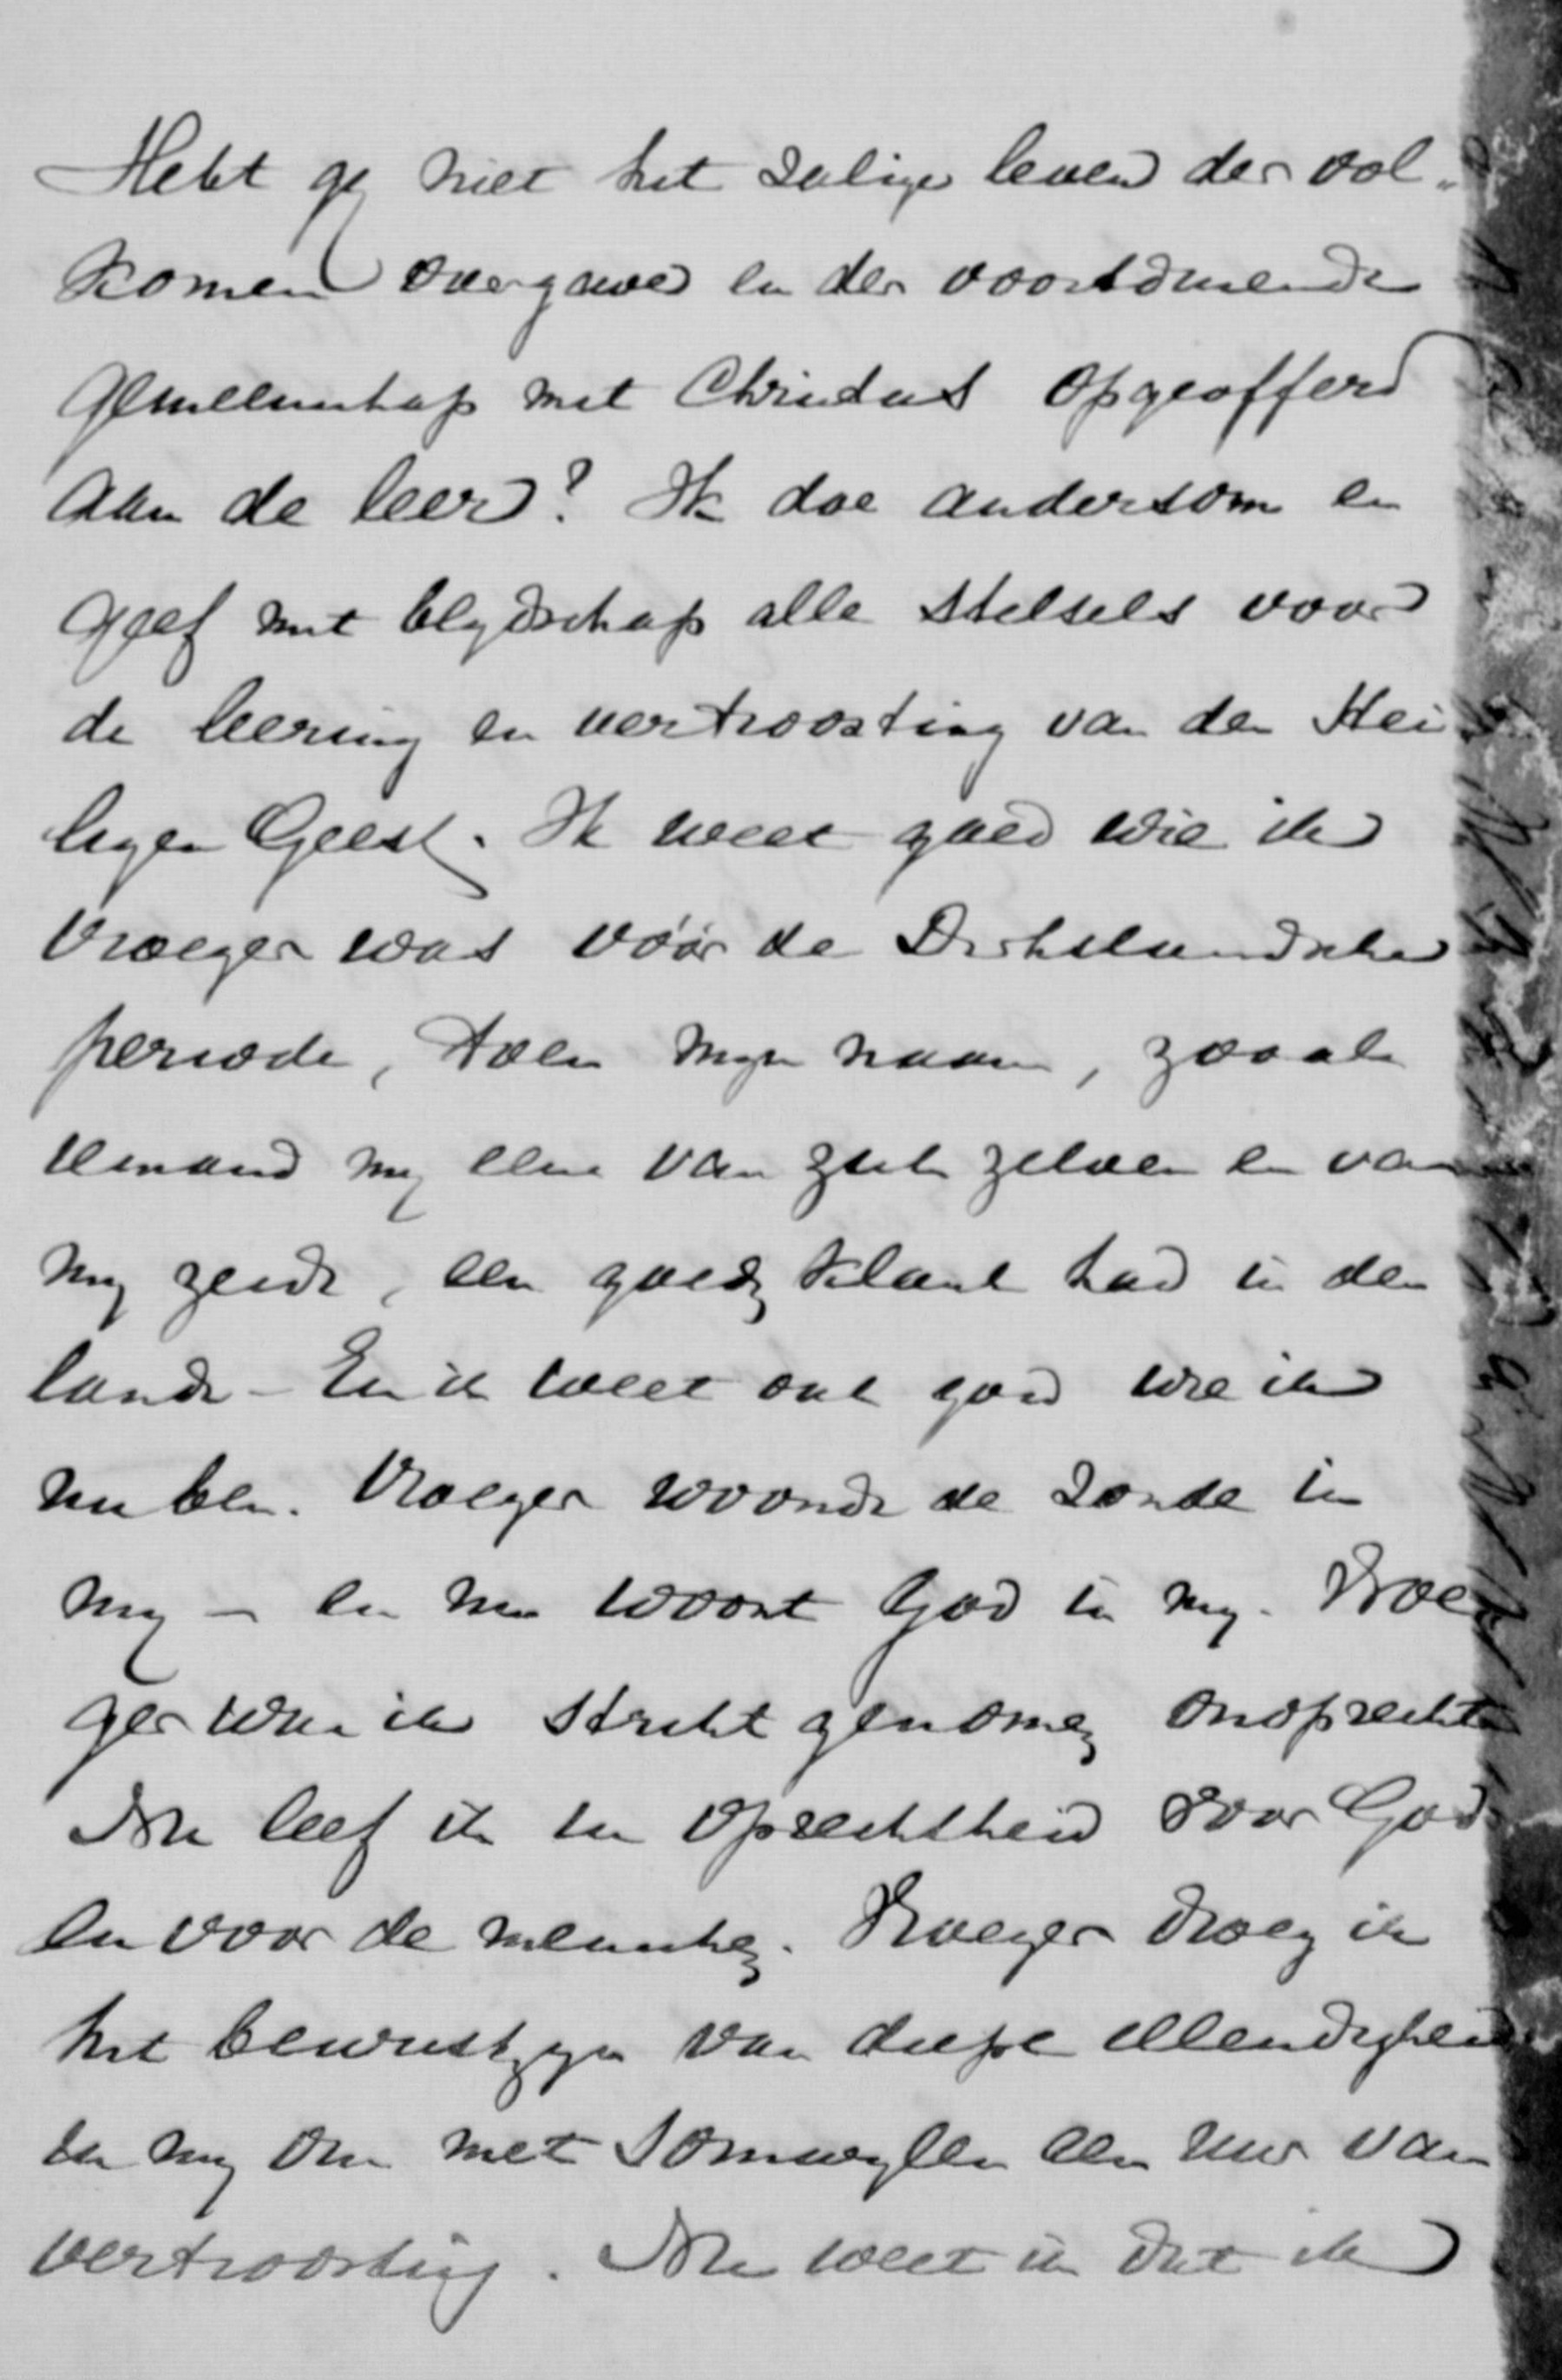 Hebt gij niet het zalige leven der vol-
komen overgave en der voortdurende
gemeenschap met Christus opgeofferd
aan de leer? Ik doe andersom en
geef met blydschap alle stelsels voor
de leering en vertroosting van den Hei
ligen Geest. Ik weet goed wie ik
vroeger was vóór de Dirkslandsche
periode, toen myn naam, zooals
iemand my eens van zich zelven en van
my zeide, een goede klank had in den
lande - En ik weet ook goed wie ik
nu ben. Vroeger woonde de zonde in
my - en nu woont God in my. Vroe
ger was ik strikt genomen onoprecht
Nu leef ik in oprechtheid voor God
en voor de menschen. Vroeger droeg ik
het bewustzyn van diepe ellendigheid
in my om met somwylen een uur van
vertroosting. Nu weet ik dat ik